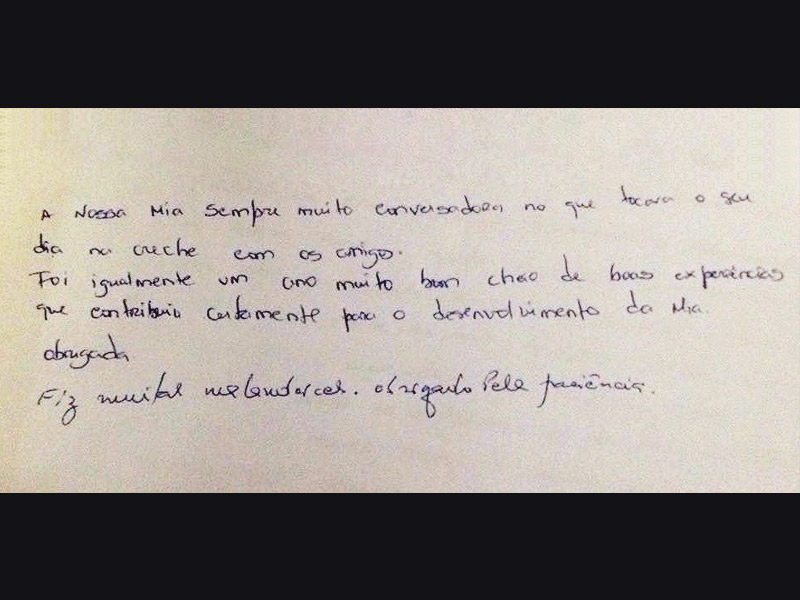 A Nossa Mia sempre muito conversadora no que tocava o seu
dia na creche com os amigo.
Foi igualmente um ano muito bom cheio de boas experiências
que contribuiu certamente para o desenvolvimento da Mia.
obrigada
Fiz muitas obrigado Pela paciência.